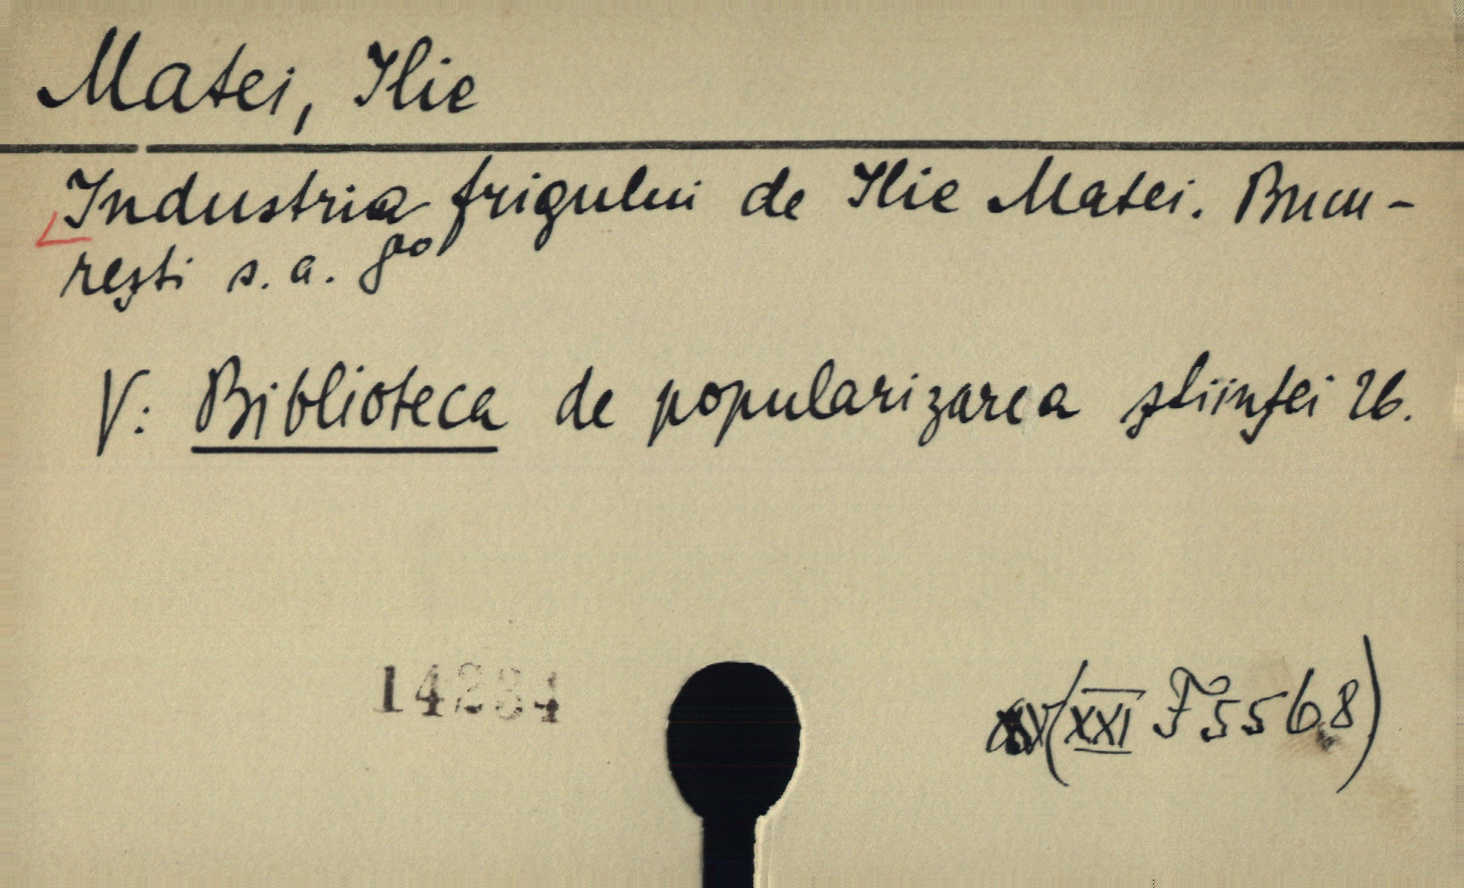 Matei, Ilie
Industria frigului de Ilie Matei. Bucu-
rești s. a. 8°
V: Biblioteca de popularizarea științei 26.
14284
(XXI F 5568)